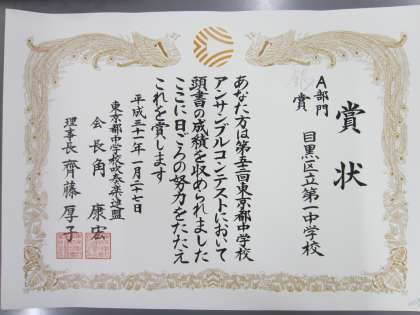 賞状
A部門
賞
目黒区立第一中学校
あなた方は第五十二回東京都中学校
アンサンブルコンテストにおいて
頭書の成績を収められました
ここに日ごろの努力をたたえ
これを賞します
平成三十一年一月二十七日
東京都中学校吹奏楽連盟
会長 角 康宏
理事長 齊藤厚子